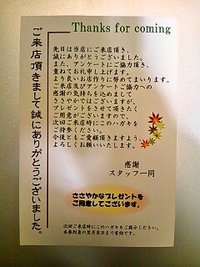 ご来店頂きまして誠にありがとうございました。
Thanks for coming
先日は当店にご来店頂き、
誠にありがとうございました。
また、アンケートにご協力頂き、
重ねてお礼申し上げます。
より良いお店作りに努めてまいります。
ご来店及びアンケートご協力への
感謝の気持ちを込めまして
ささやかではございますが、
プレゼントをさせて頂きたく
ご用意しておりますので、
次回ご来店時にこのハガキを
ご持参ください。
今後ともご愛顧頂きますよう、
よろしくお願いいたします。
感謝
スタッフ一同
ささやかなプレゼントを
ご用意してございます。
次回ご来店時にこのハガキをご提示ください。